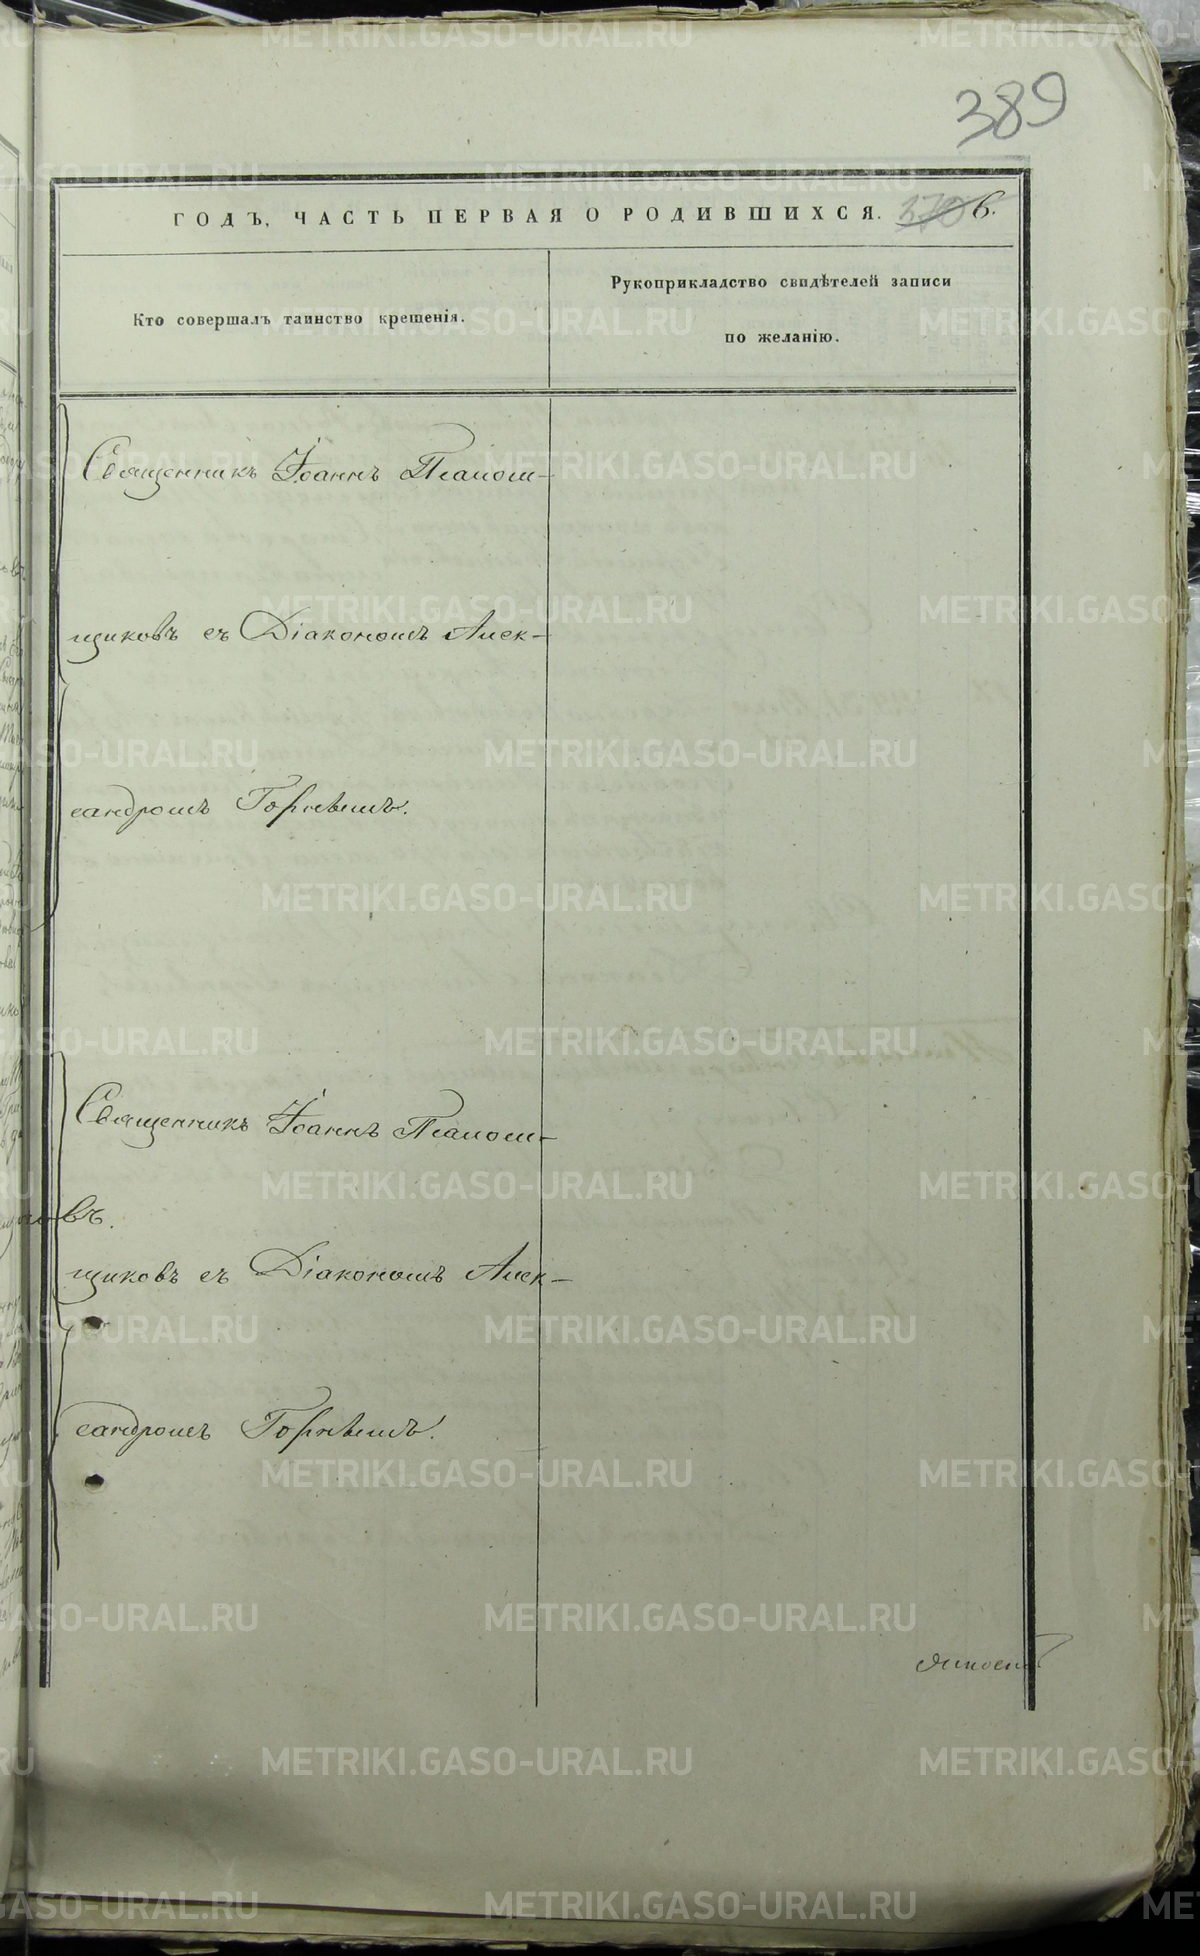 389
ГОДЪ, ЧАСТЬ ПЕРВАЯ О РОДИВШИХСЯ. 6.
Кто совершалъ таинство крещенія.
Рукоприкладство свидѣтелей записи
по желанію.
Священникъ Іоаннъ Псаломщ-
щиковъ съ Діакономъ Алек-
сандромъ Горнѣмъ.
Священникъ Іоаннъ Псаломщ-
въ.
щиковъ съ Діакономъ Алек-
сандромъ Горнѣмъ.
METRIKI.GASO-URAL.RU